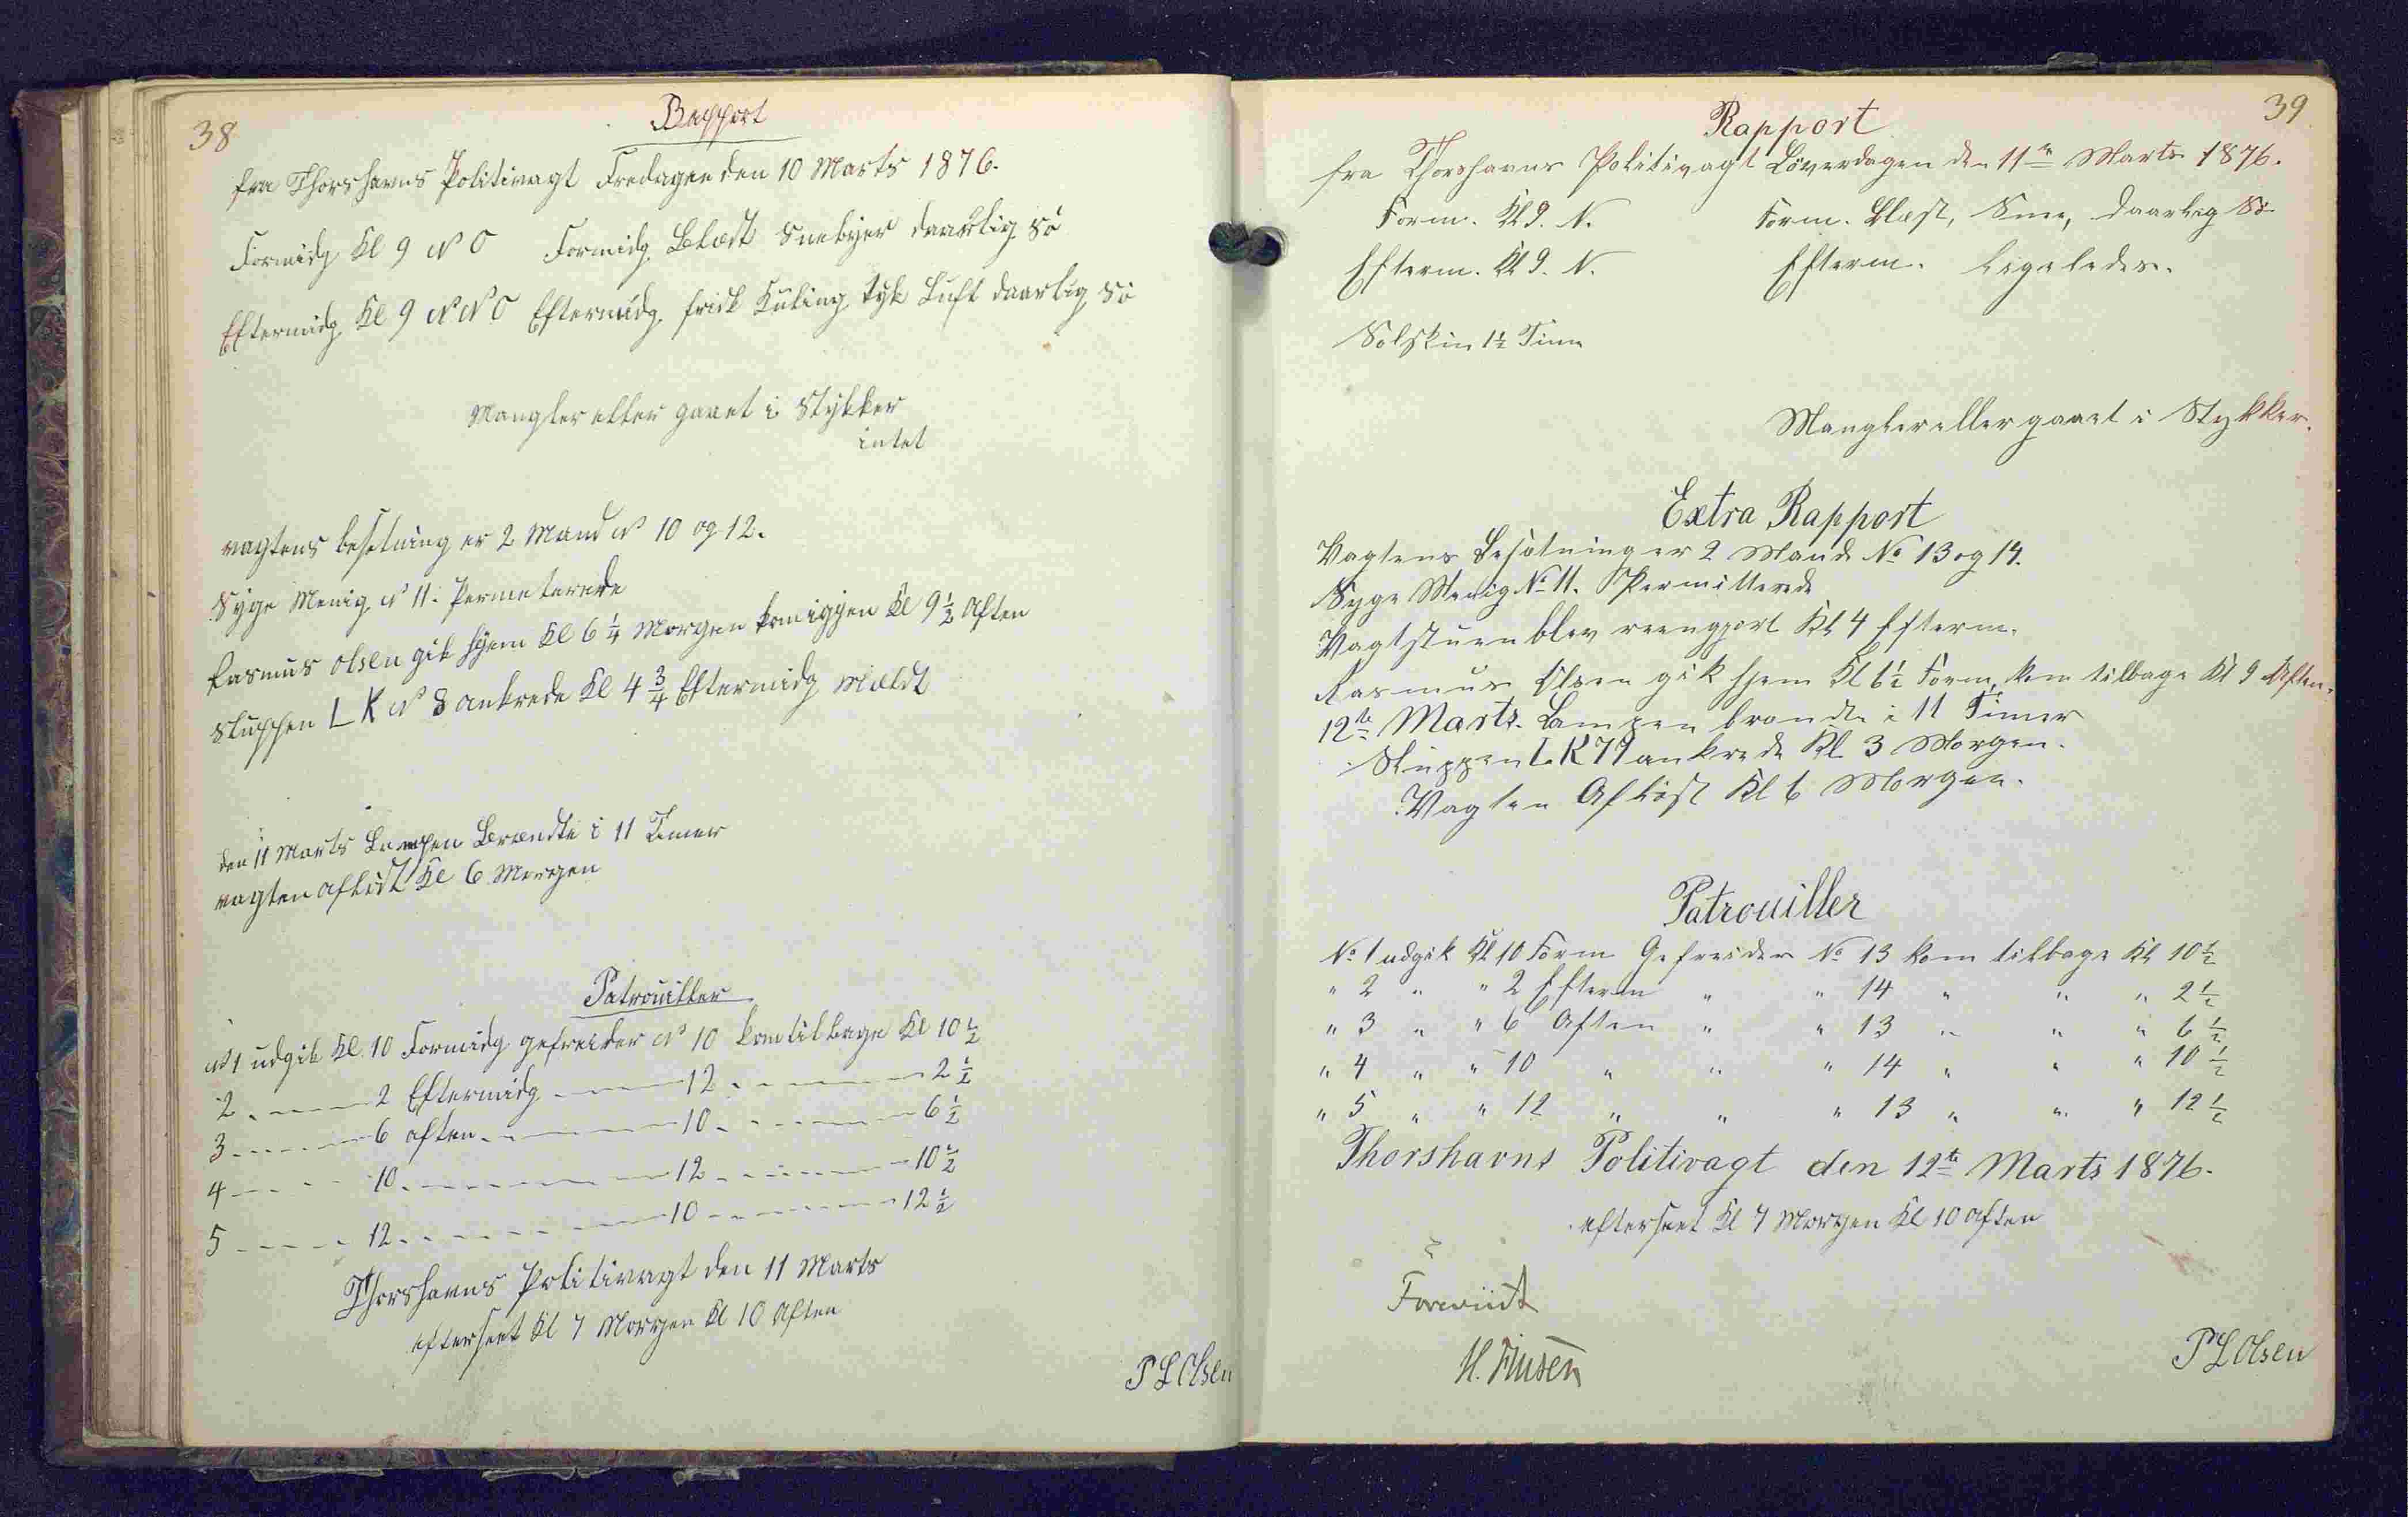 38
Rapport
fra Thorshavns Politivagt Fredagen den 10 Marts 1876.
Formidg Kl 9 N O Formidg. Blæst Snebyer daarlig Sö
Eftermidg Kl 9 N N O Eftermidg. frisk Kuling tyk Luft daarlig Sö
Mangler eller gaaet i Stykker
intet
vagtens besetning er 2 Mand N 10 og 12.
Syge Menig N 11. Permeterede
Rasmus Olsen gik hjem Kl 6 1/4 Morgen kom igjen Kl 9 1/2 Aften
Sluppen L K N 8 ankrede Kl 4 3/4 Eftermidg Meldt
den 11 Marts Lampen Brændte i 11 Timer
vagten aflöst Kl 6 Morgen
Patrouiller
N 1 udgik Kl. 10 Formidg gefreider N 10 kom tilbage Kl 10 1/2
2 - - - - 2 Eftermidg - - - 12 - - - - 2 1/2
3 - - - - 6 aften - - - - 10 - - - - 6 1/2
4 - - - - 10 - - - - 12 - - - - 10 1/2
5 - - - - 12 - - - - 10 - - - - 12 1/2
Thorshavns Politivagt den 11 Marts
efterseet Kl 7 Morgen Kl 10 Aften
P L Olsen
39
Rapport
fra Thorshavns Politivagt Löverdagen den 11te Marts 1876.
Form. Kl 9. N. Form. Blæst, Snee, daarlig Sö
Efterm. Kl 9. N. Efterm. Ligeledes.
Solskin 1 1/2 Time
Mangler eller gaaet i Stykker.
Extra Rapport
Vagtens Besætning er 2 Mand No 13 og 14.
Syge Menig No 11. Permitterede
Vagtstuen blev reengjort Kl 4 Efterm.
Rasmus Olsen gik hjem Kl 6 1/2 Form, kom tilbage Kl 9 Aften.
12te Marts. Lampen brændte i 11 Timer
Sluppen L K 77 ankrede Kl 3 Morgen.
Vagten Aflöst Kl 6 Morgen.
Patrouiller
No 1 udgik Kl 10 Form Gefreider No 13 kom tilbage Kl 10 1/2
" 2 " " 2 Efterm " " 14 " " " 2 1/2
" 3 " " 6 Aften " " 13 " " " 6 1/2
" 4 " " 10 " " " 14 " " " 10 1/2
" 5 " " 12 " " " 13 " " " 12 1/2
Thorshavns Politivagt den 12te Marts 1876.
efterseet Kl 7 Morgen Kl 10 aften
Foreviist
H. Finsen
P L Olsen